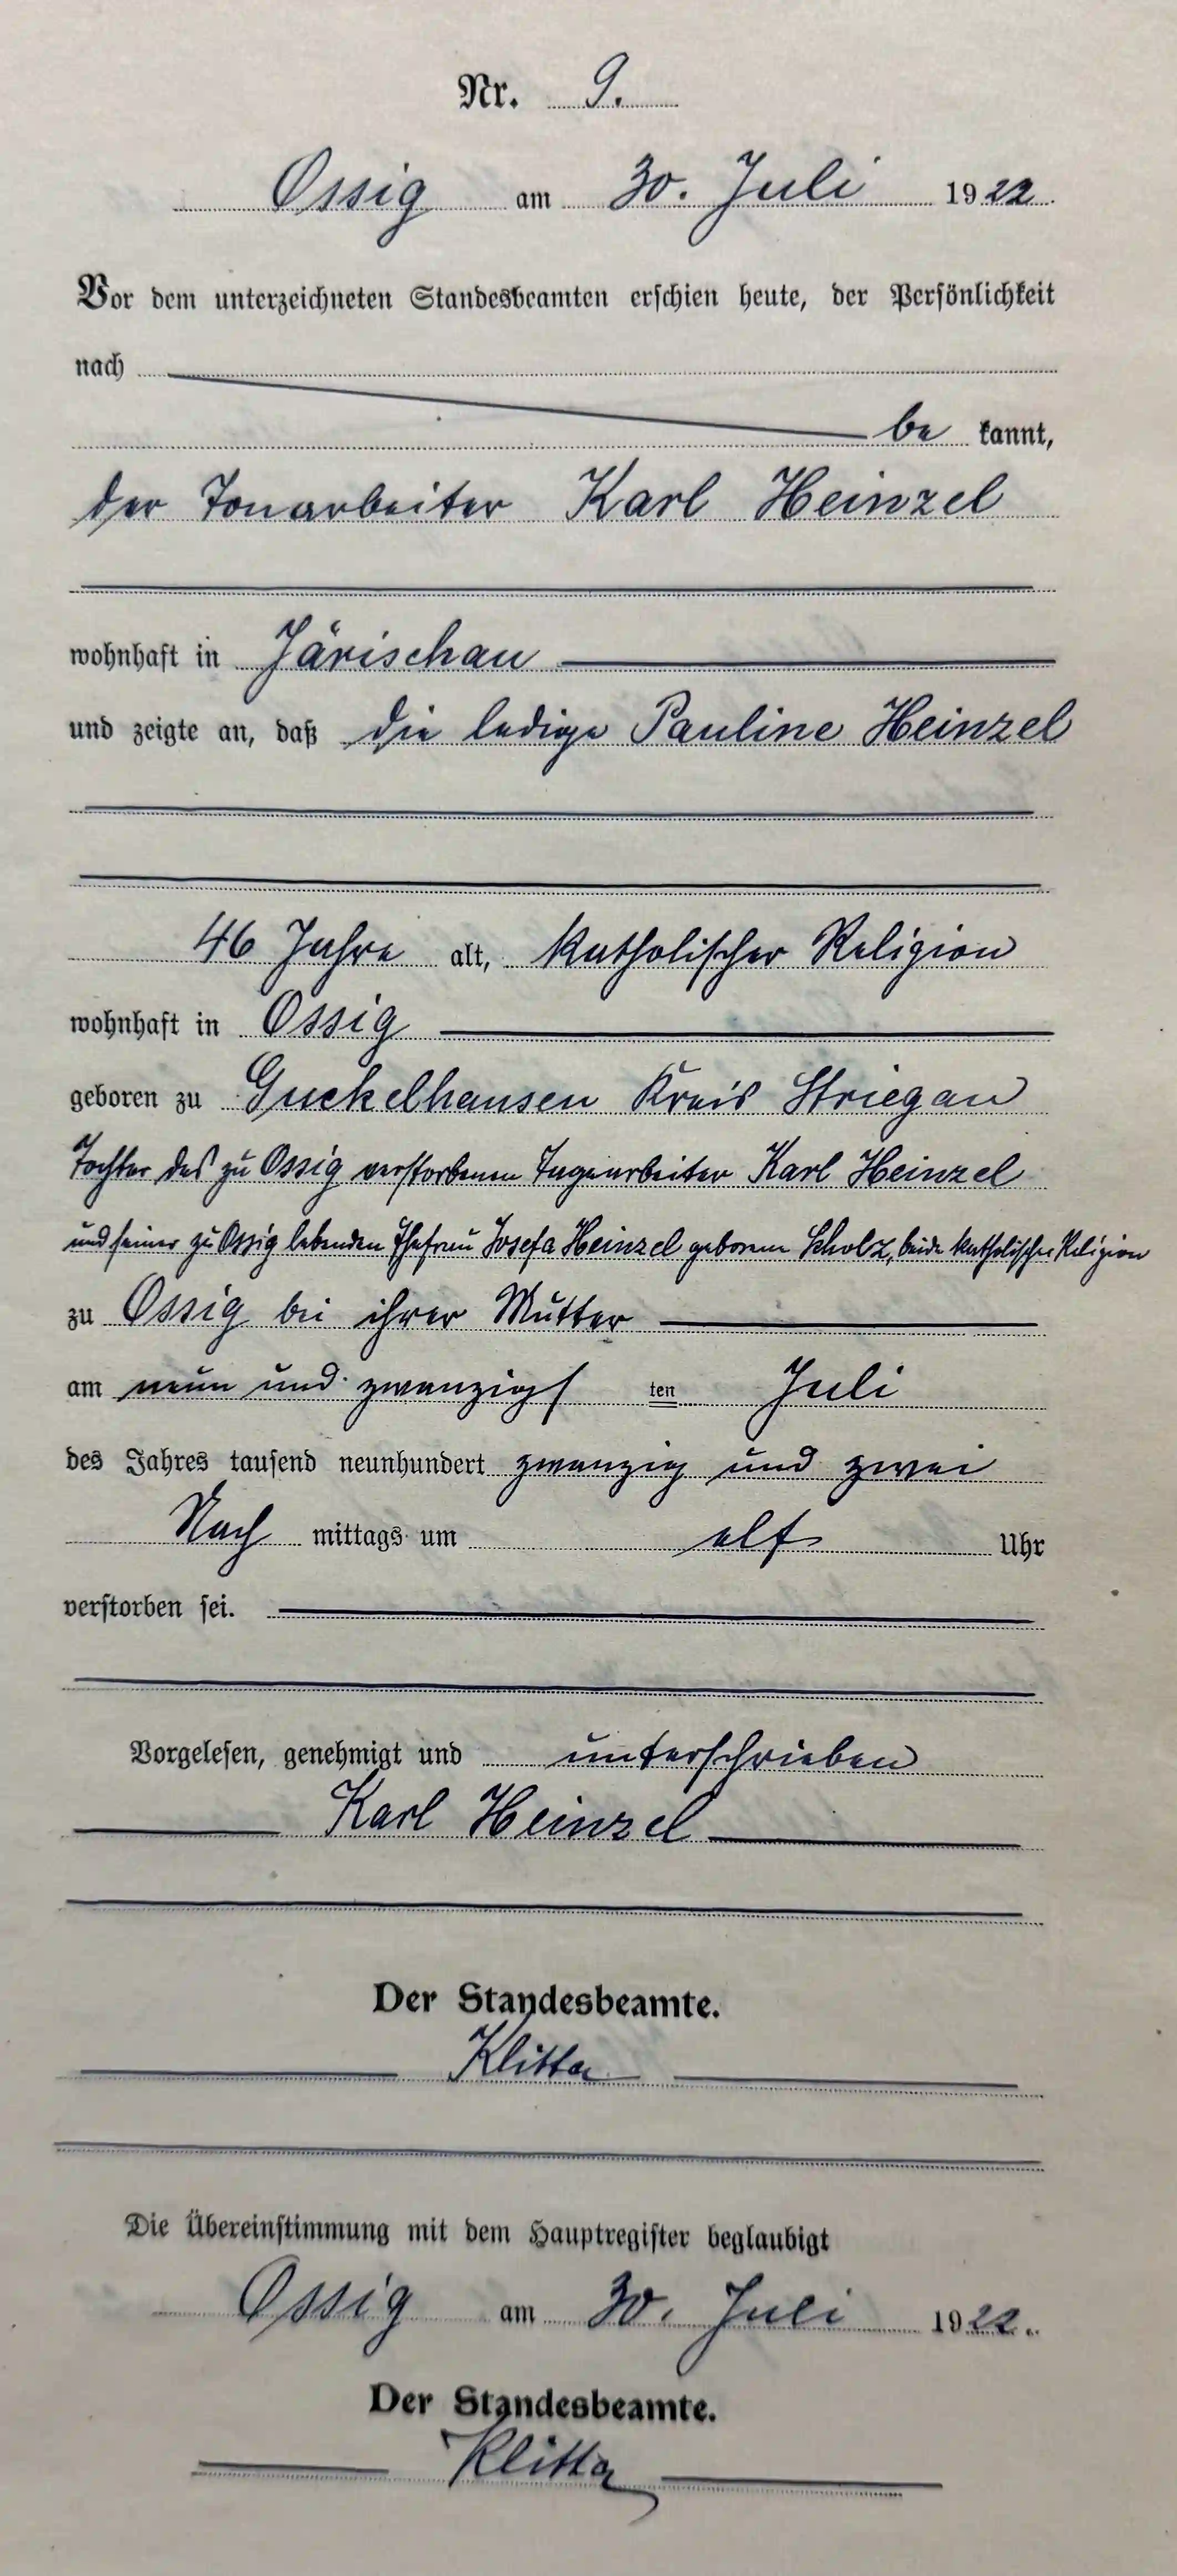 Nr. 9.
Ossig am 30. Juli 1922.
Vor dem unterzeichneten Standesbeamten erschien heute, der Persönlichkeit
nach
be kannt,
der Tonarbeiter Karl Heinzel
wohnhaft in Järischau
und zeigte an, daß die ledige Pauline Heinzel
46 Jahre alt, katholischer Religion
wohnhaft in Ossig
geboren zu Guckelhausen Kreis Striegau
Tochter des zu Ossig verstorbenen Tagearbeiter Karl Heinzel
und seiner zu Ossig lebenden Ehefrau Josefa Heinzel geborene Scholz, beide katholischer Religion
zu Ossig bei ihrer Mutter
am neun und zwanzigs ten Juli
des Jahres tausend neunhundert zwanzig und zwei
Nach mittags um elf Uhr
verstorben sei.
Vorgelesen, genehmigt und unterschrieben
Karl Heinzel
Der Standesbeamte.
Klitta
Die Übereinstimmung mit dem Hauptregister beglaubigt
Ossig am 30. Juli 1922.
Der Standesbeamte.
Klitta